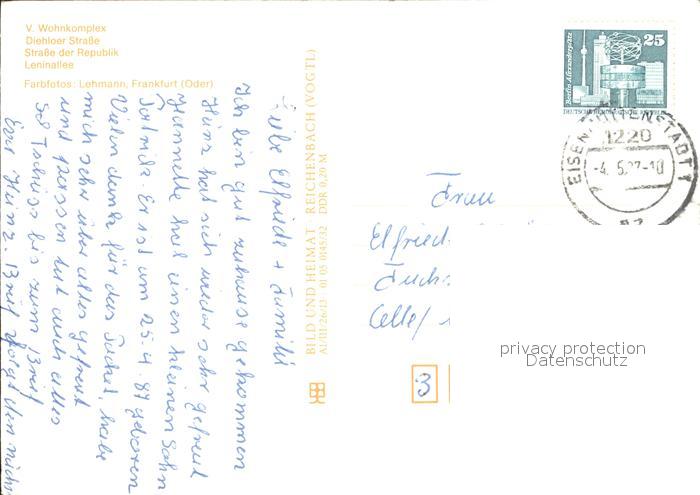 V. Wohnkomplex
Diehloer Straße
Straße der Republik
Leninallee
Farbfotos: Lehmann, Frankfurt (Oder)
Liebe Elfriede + Familie
Ich bin gut zuhause gekommen
Heinz hat sich wieder sehr gefreut
hat einen kleinen Sohn
Er ist am 25.4.87 geboren
Vielen dank für das Päckel, habe
mich sehr über alles gefreut
und passen tut auch alles
So Tschüss bis zum Brief
Eur Heinz. Brief folgt den nächs
BILD UND HEIMAT REICHENBACH (VOGTL)
A1/III/26/13 01 05 0145/32 DDR 0,20 M
25
Berlin, Alexanderplatz
DEUTSCHE DEMOKRATISCHE REPUBLIK
EISENHÜTTENSTADT 1
1220
-4. 5.87-10
Frau
Elfried
Fuchs
Celle/
3
privacy protection
Datenschutz